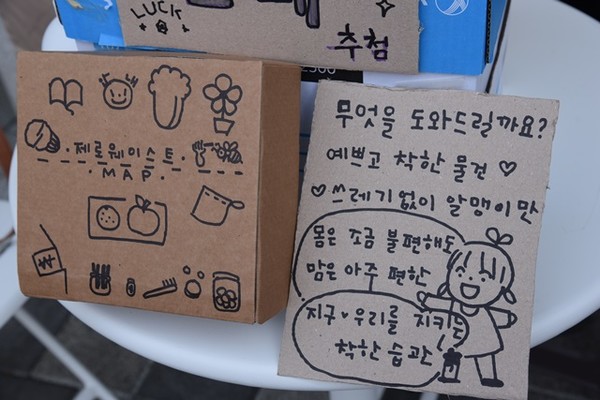 LUCK
추첨
제로웨이스트
MAP
₩
무엇을 도와드릴까요?
예쁘고 착한 물건 ♡
♡ 쓰레기없이 알맹이만
몸은 조금 불편해도
맘은 아주 편한
지구♥우리를 지키는
착한 습관